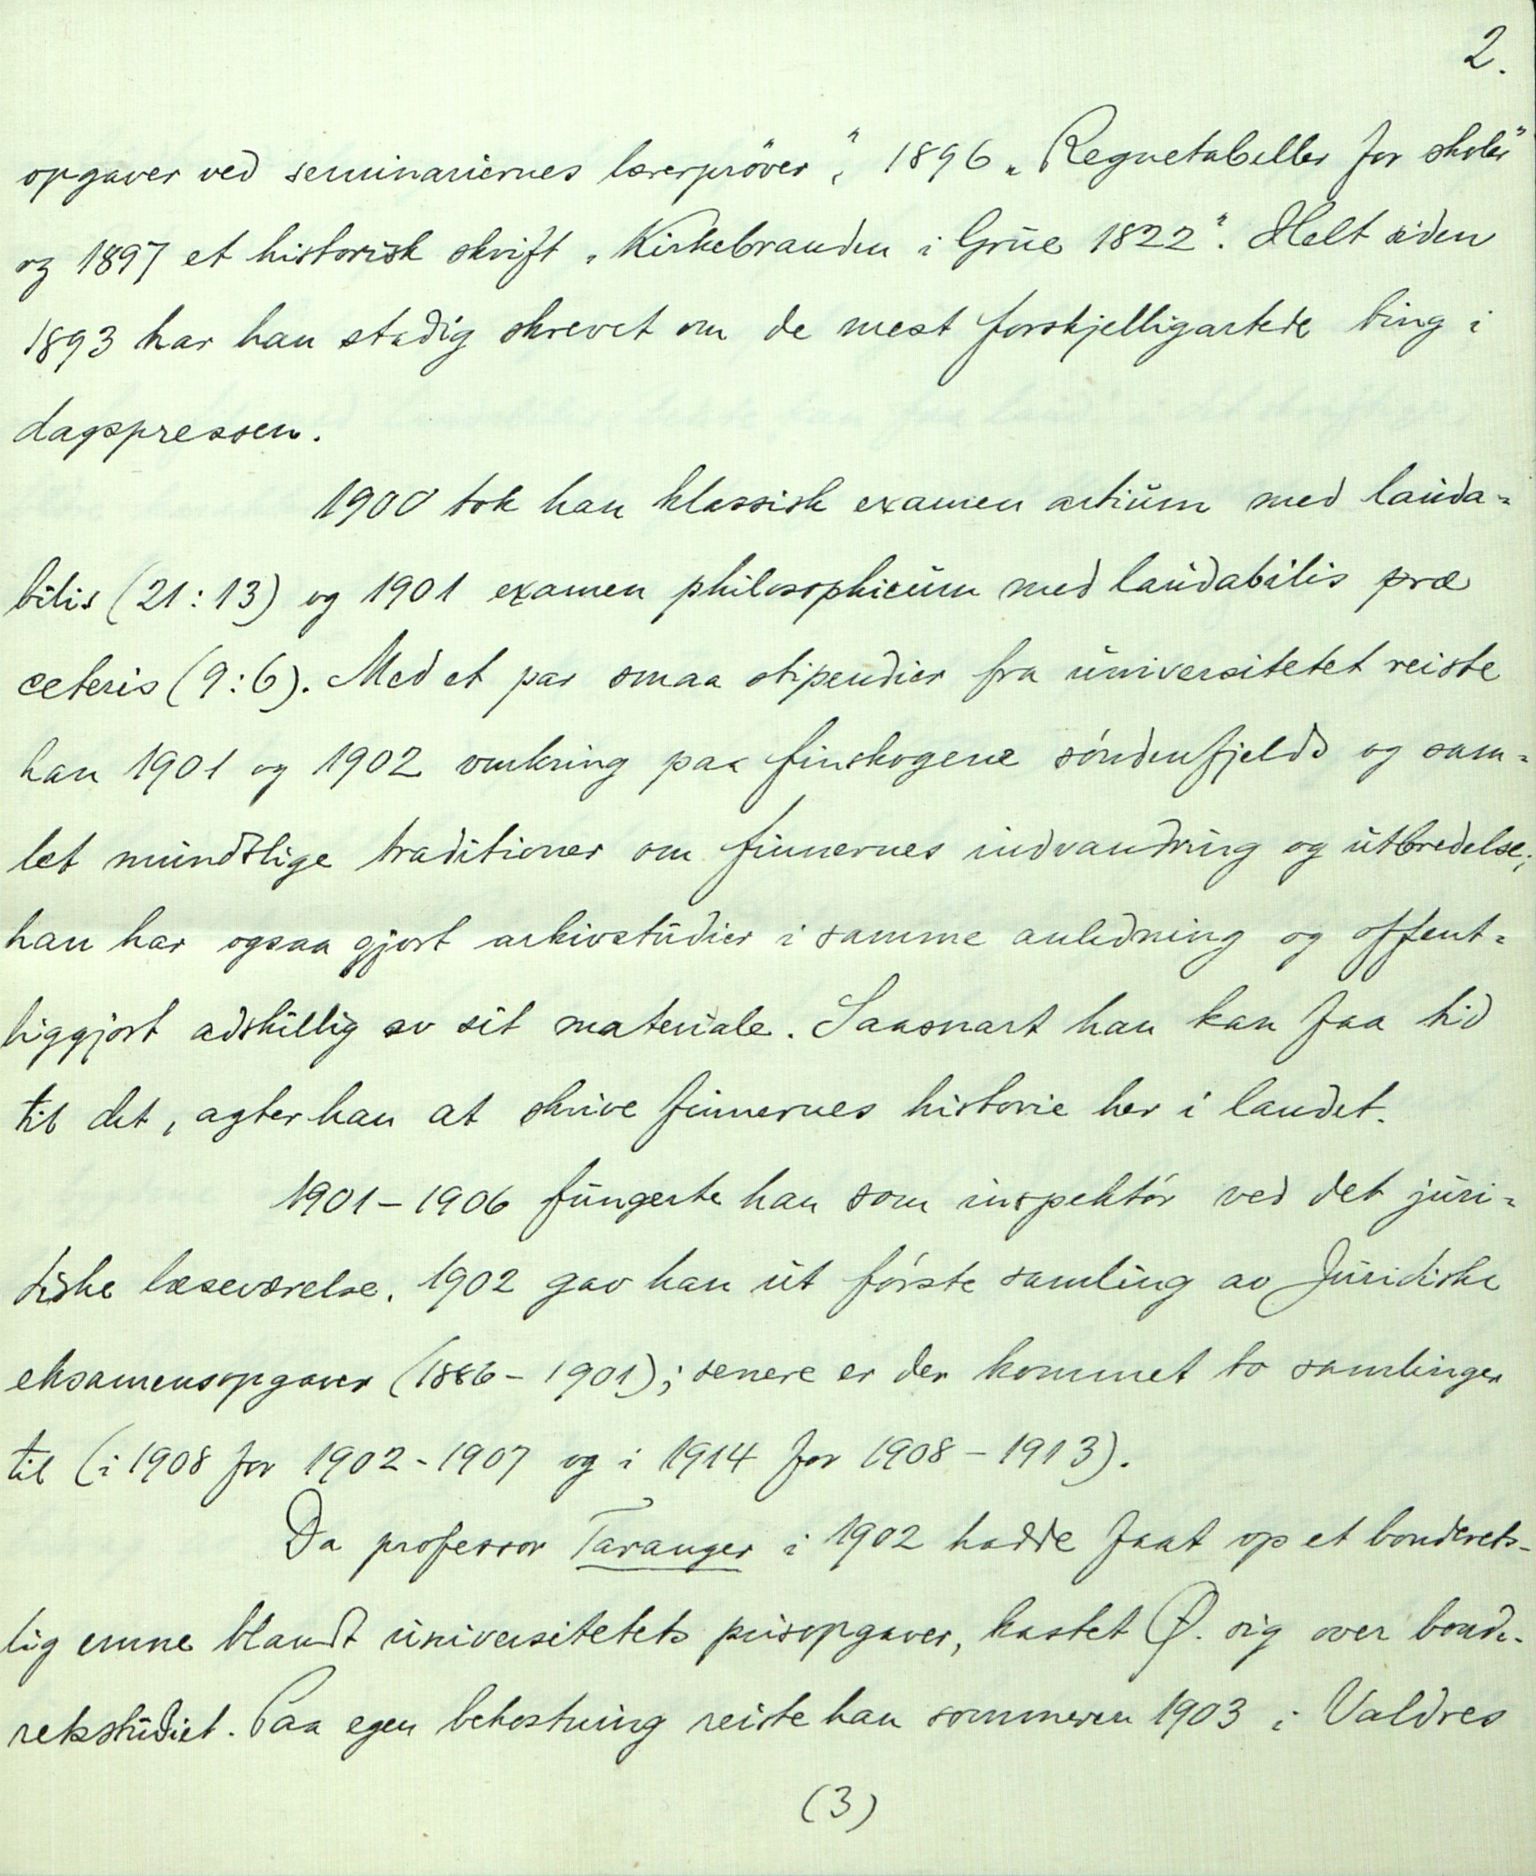 2.
opgaver ved seminariernes lærerpröver", 1896 „Regnetabeller for skoler"
og 1897 et historisk skrift „Kirkebranden i Grue 1822". Helt siden
1893 har han stadig skrevet om de mest forskjelligartede ting i
dagspressen.
1900 tok han klassisk examen artium med lauda-
bilis (21:13) og 1901 examen philosophicum med laudabilis præ
ceteris (9:6). Med et par smaa stipendier fra universitetet reiste
han 1901 og 1902 omkring paa finskogene søndenfjelds og sam-
let mundtlige traditioner om finnernes indvandring og utbredelse;
han har ogsaa gjort arkivstudier i samme anledning og offent-
liggjort adskillig av sit materiale. Saasnart han kan faa tid
til det, agter han at skrive finnernes historie her i landet.
1901-1906 fungerte han som inspektør ved det juri-
diske læseværelse. 1902 gav han ut første samling av Juridiske
eksamensopgaver (1886-1901); senere er der kommet to samlinger
til (i 1908 for 1902-1907 og i 1914 for 1908-1913).
Da professor Taranger i 1902 hadde faat op et bonderets-
lig emne blandt universitetets prisopgaver, kastet Ø. sig over bonde-
retsstudiet. Paa egen bekostning reiste han sommeren 1903 i Valdres
(3)